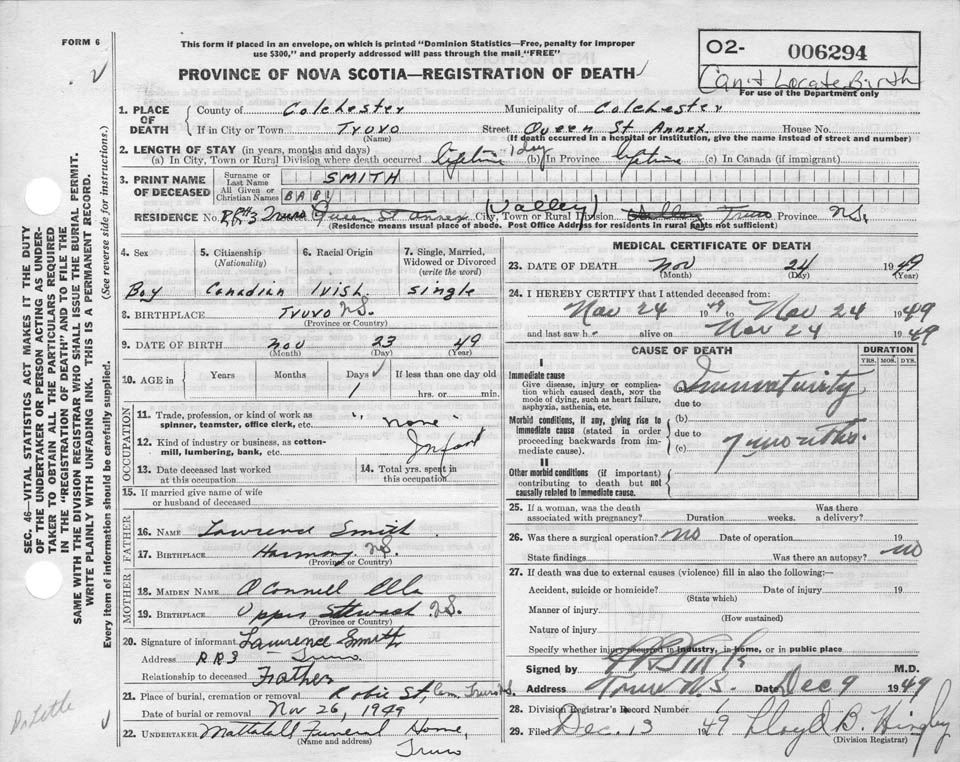 FORM 6
This form if placed in an envelope, on which is printed "Dominion Statistics—Free, penalty for improper
use $300," and properly addressed will pass through the mail "FREE"
O2- 006294
PROVINCE OF NOVA SCOTIA—REGISTRATION OF DEATH
Can't Locate Birth
For use of the Department only
1. PLACE OF DEATH County of Colchester Municipality of Colchester
If in City or Town Truro Street Queen St. Annex House No.
(Name) (If death occurred in a hospital or institution, give the name instead of street and number)
2. LENGTH OF STAY (in years, months and days)
(a) In City, Town or Rural Division where death occurred lifetime 1 day (b) In Province lifetime (c) In Canada (if immigrant)
3. PRINT NAME OF DECEASED Surname or Last Name SMITH
All Given or Christian Names BABY
RESIDENCE No. RR#3 Truro Street Queen St Annex City, Town or Rural Division (Valley) Truro Province N.S.
(Residence means usual place of abode. Post Office Address for residents in rural parts not sufficient)
4. Sex 5. Citizenship (Nationality) 6. Racial Origin 7. Single, Married, Widowed or Divorced (write the word)
Boy Canadian Irish single
8. BIRTHPLACE Truro N.S.
(Province or Country)
9. DATE OF BIRTH Nov 23 49
(Month) (Day) (Year)
10. AGE in Years Months Days If less than one day old
1 hrs. or min.
OCCUPATION
11. Trade, profession, or kind of work as spinner, teamster, office clerk, etc. "none"
12. Kind of industry or business, as cotton-mill, lumbering, bank, etc. Infant
13. Date deceased last worked at this occupation 14. Total yrs. spent in this occupation
15. If married give name of wife or husband of deceased
FATHER
16. NAME Lawrence Smith
17. BIRTHPLACE Harmony N.S.
(Province or Country)
MOTHER
18. MAIDEN NAME O'Connell Ella
19. BIRTHPLACE Upper Stewiacke N.S.
(Province or Country)
20. Signature of informant Lawrence Smith
Address RR3 Truro
Relationship to deceased Father
21. Place of burial, cremation or removal Robie St. Cem. Truro N.S.
Date of burial or removal Nov 26, 1949
22. UNDERTAKER Mattatall Funeral Home,
(Name and address) Truro
MEDICAL CERTIFICATE OF DEATH
23. DATE OF DEATH Nov 24 1949
(Month) (Day) (Year)
24. I HEREBY CERTIFY that I attended deceased from:
Nov 24 1949 to Nov 24 1949
and last saw h alive on Nov 24 1949
CAUSE OF DEATH DURATION
YRS. MOS. DYS.
I
Immediate cause
Give disease, injury or complication which caused death, NOT the mode of dying, such as heart failure, asphyxia, asthenia, etc.
(a) Immaturity
due to
Morbid conditions, if any, giving rise to immediate cause (stated in order proceeding backwards from immediate cause).
(b)
due to 7 months.
(c)
II
Other morbid conditions (if important) contributing to death but not causally related to immediate cause.
25. If a woman, was the death associated with pregnancy? Duration weeks. Was there a delivery?
26. Was there a surgical operation? no Date of operation 19
State findings Was there an autopsy? no
27. If death was due to external causes (violence) fill in also the following:—
Accident, suicide or homicide? Date of injury 19
(State which)
Manner of injury
(How sustained)
Nature of injury
Specify whether injury occurred in industry, in home, or in public place
Signed by M.D.
Address Truro N.S. Date Dec 9 1949
28. Division Registrar's Record Number 1
29. Filed Dec. 13 1949 Lloyd B.
(Division Registrar)
SEC. 46—VITAL STATISTICS ACT MAKES IT THE DUTY
OF THE UNDERTAKER OR PERSON ACTING AS UNDER-
TAKER TO OBTAIN ALL THE PARTICULARS REQUIRED
IN THE "REGISTRATION OF DEATH" AND TO FILE THE
SAME WITH THE DIVISION REGISTRAR WHO SHALL ISSUE THE BURIAL PERMIT.
WRITE PLAINLY WITH UNFADING INK. THIS IS A PERMANENT RECORD.
Every item of information should be carefully supplied. (See reverse side for instructions.)